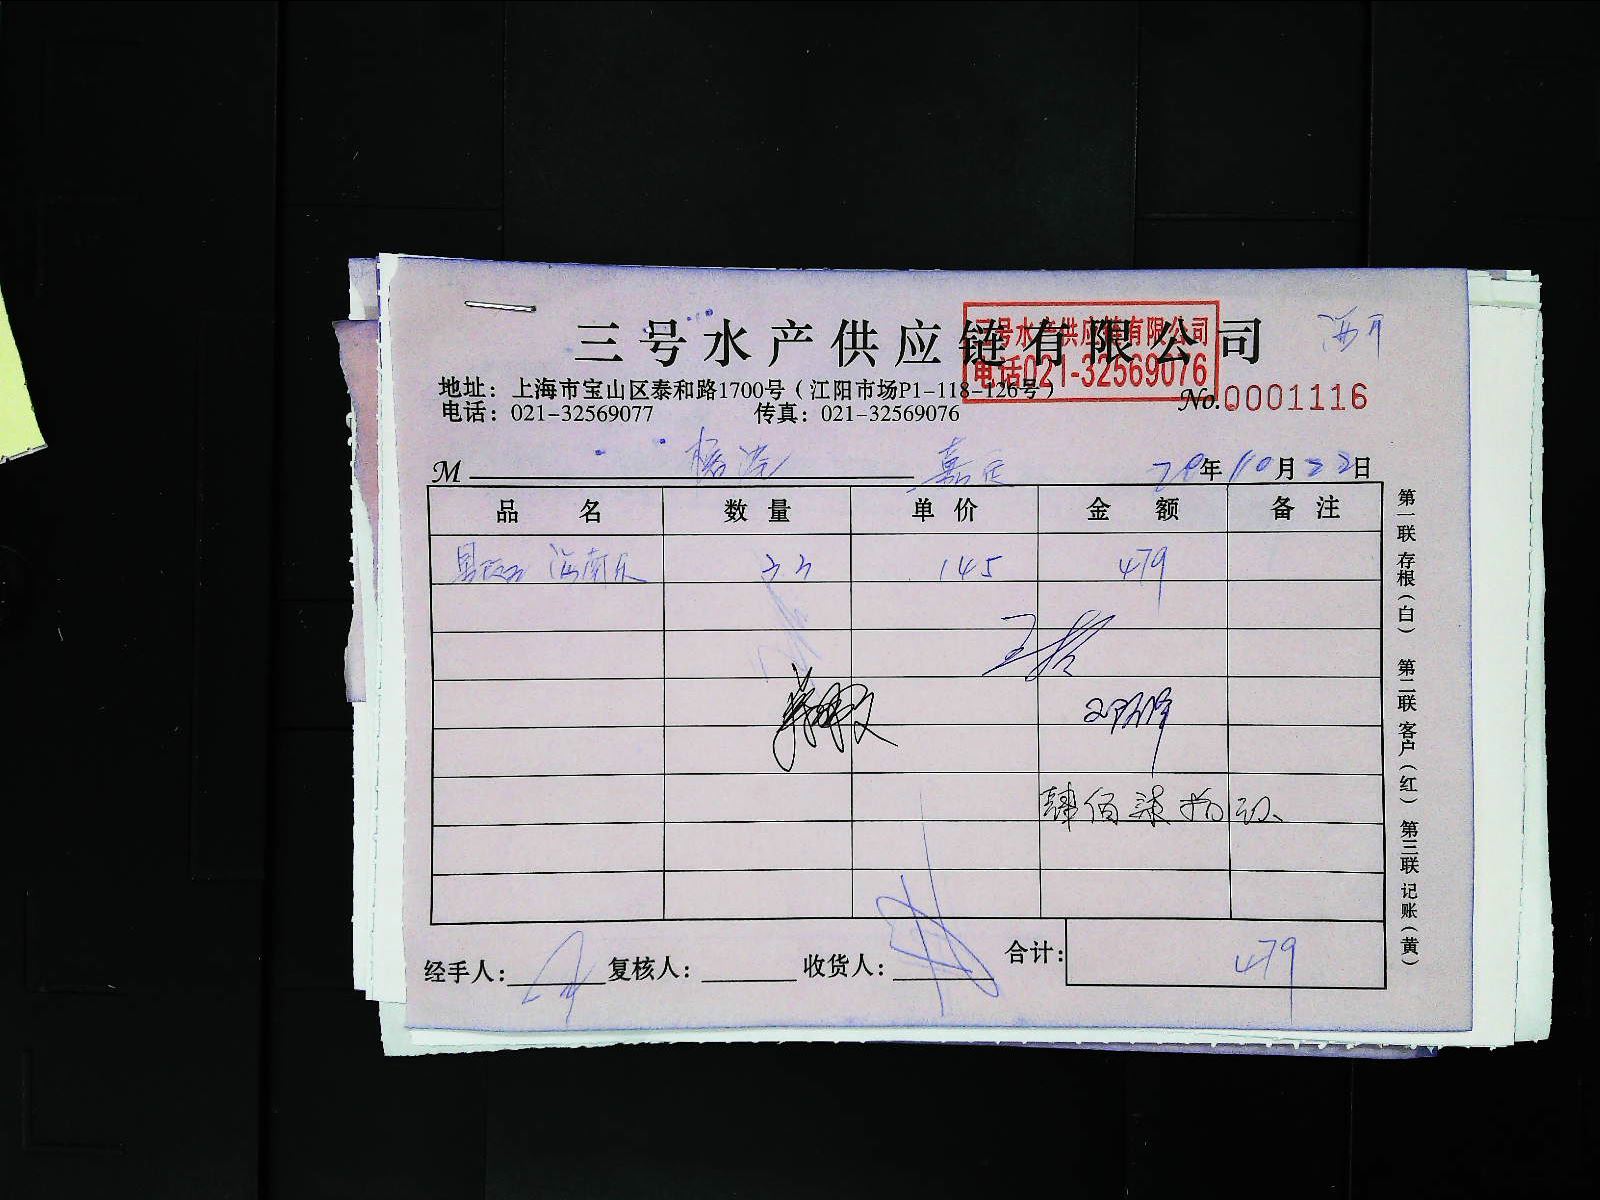 三号水产供应链有限公司
三号水产供应链有限公司
电话021-32569076
地址：上海市宝山区泰和路1700号（江阳市场P1-118-126号）
电话：021-32569077 传真：021-32569076
No. 0001116
M 嘉定 年10月22日
品名 数量 单价 金额 备注
海南 33 145 479
肆佰柒拾
经手人： 复核人： 收货人： 合计： 479
第一联 存根（白） 第二联 客户（红） 第三联 记账（黄）